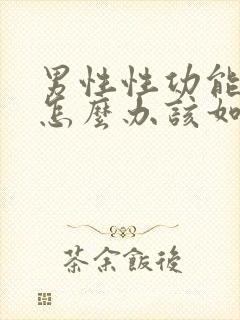 男性性功能
怎麼办該如
茶余飯後